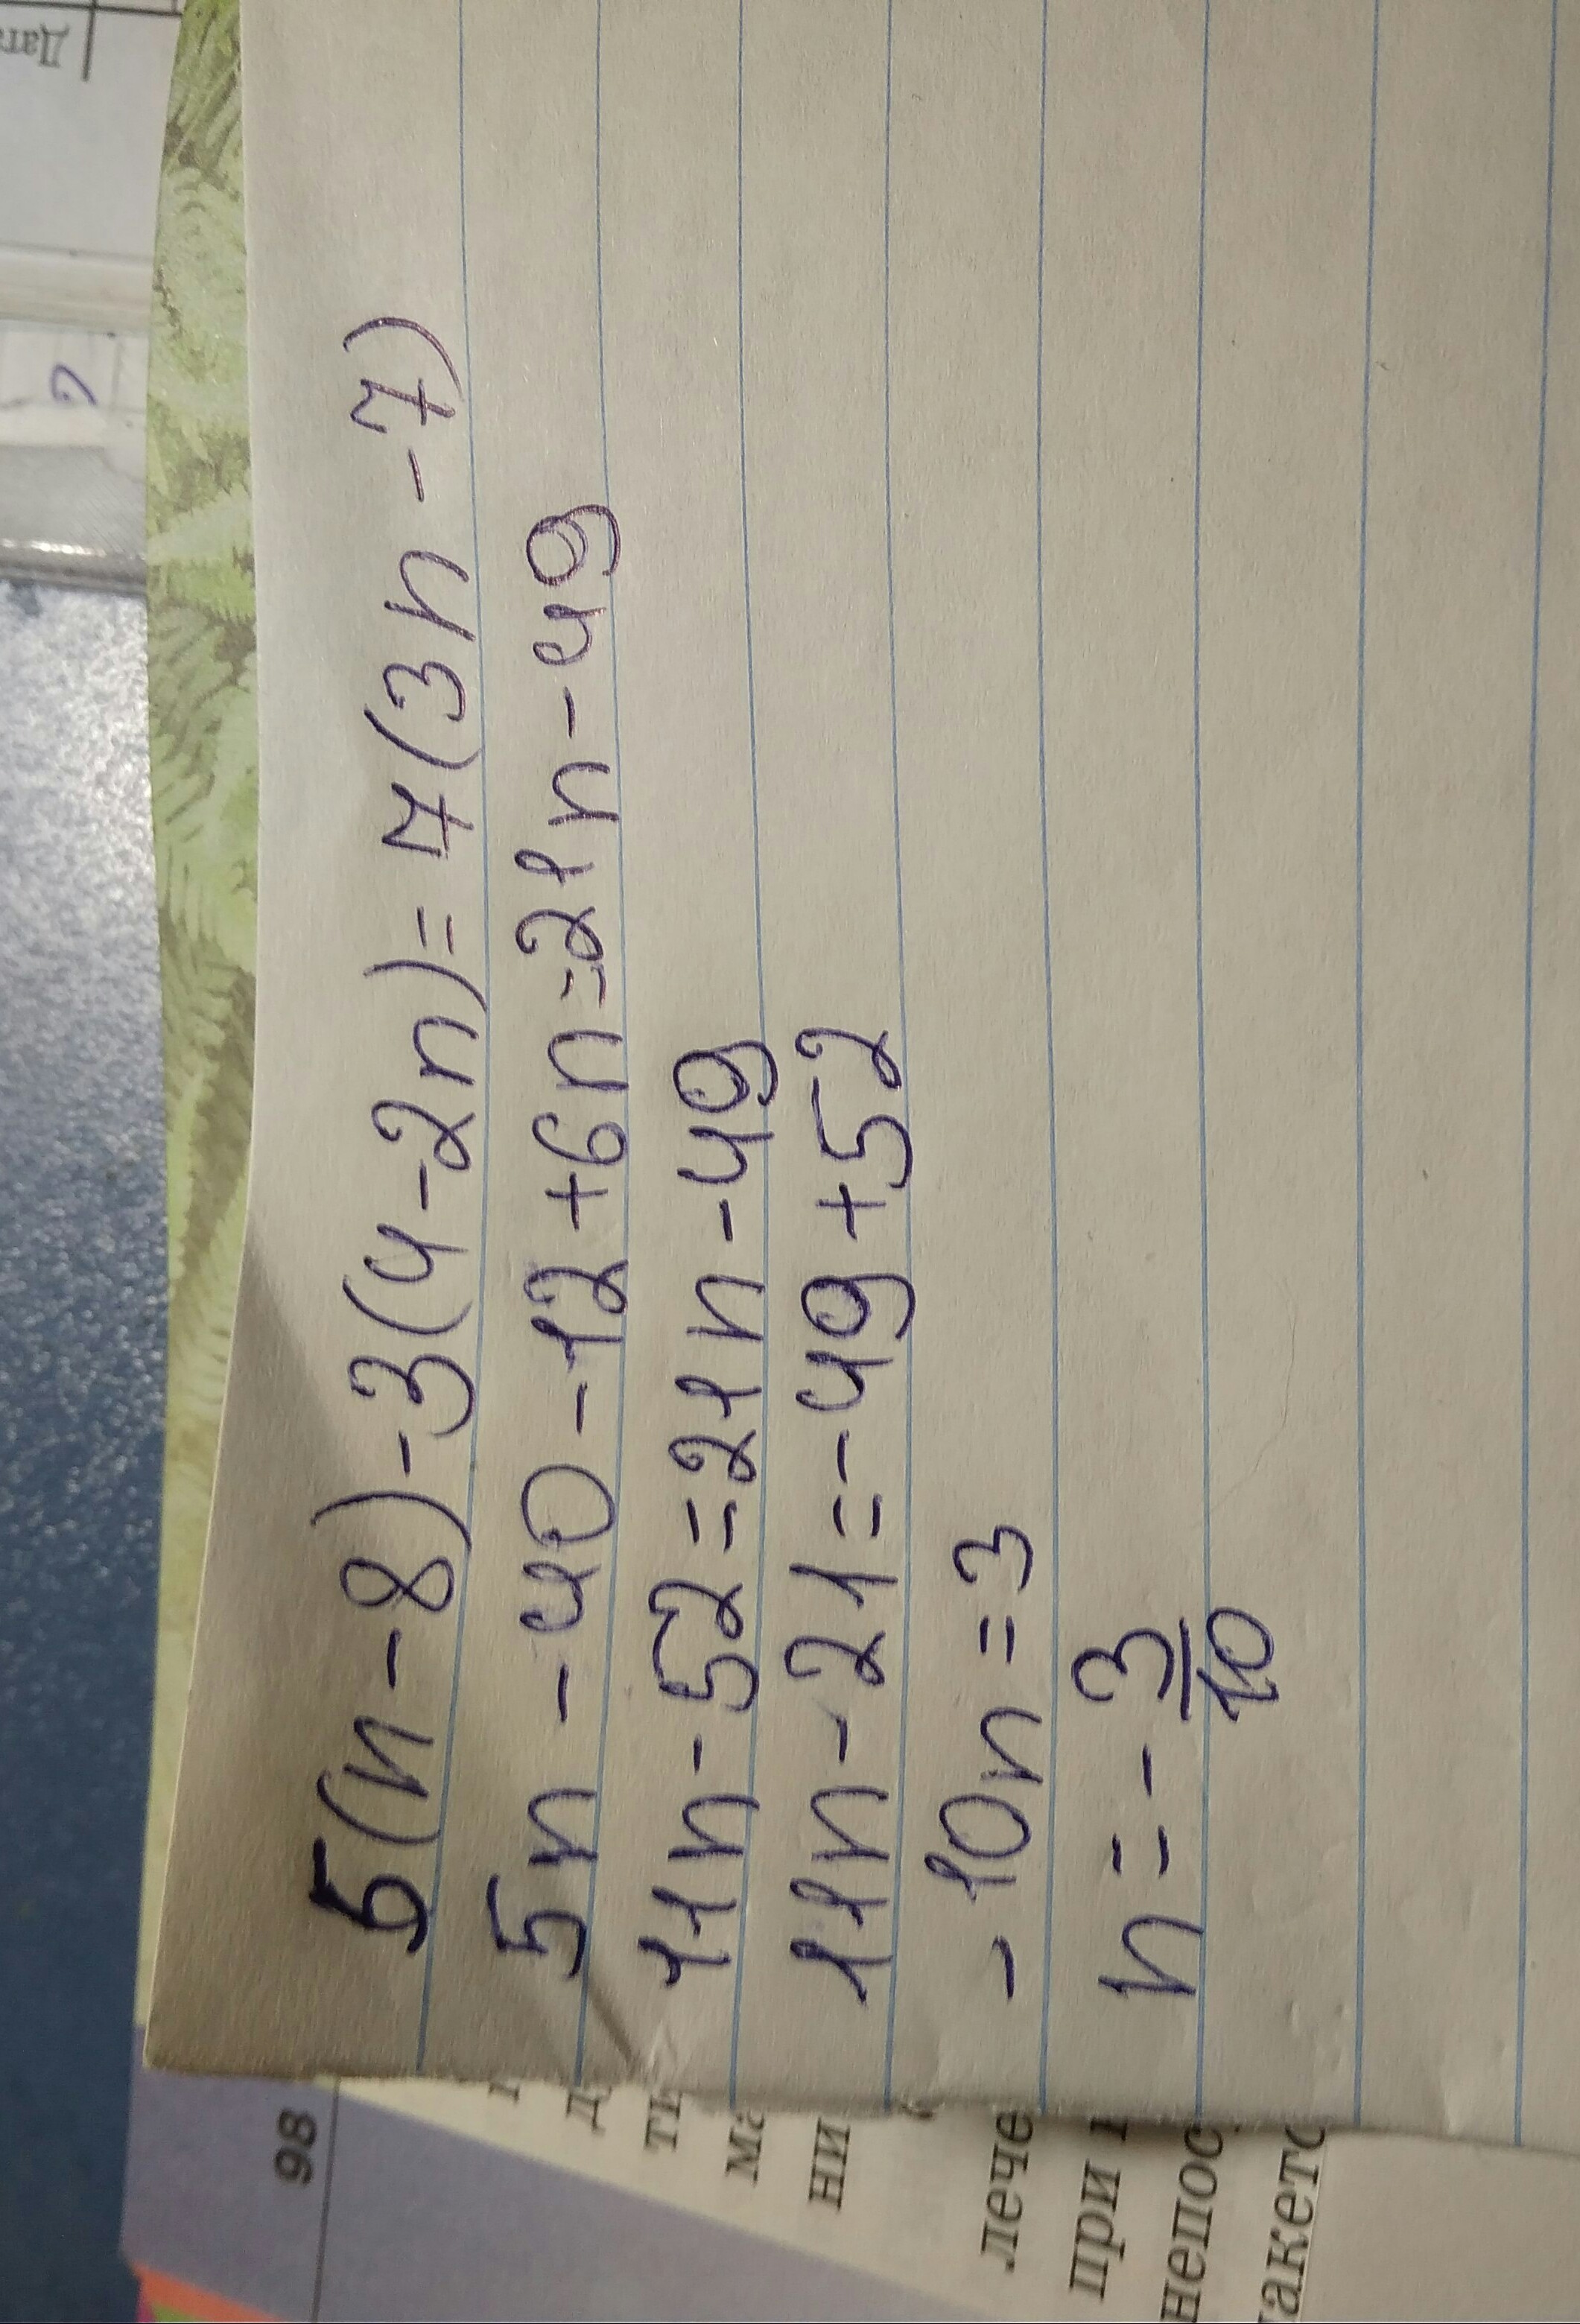 5(n-8)-3(4-2n)=7(3n-7)
5n-40-12+6n=21n-49
11n-52=21n-49
11n-21=-49+52
-10n=3
n=-3/10
98
ти
ма
ни
лече
при
непос
акето
Дата